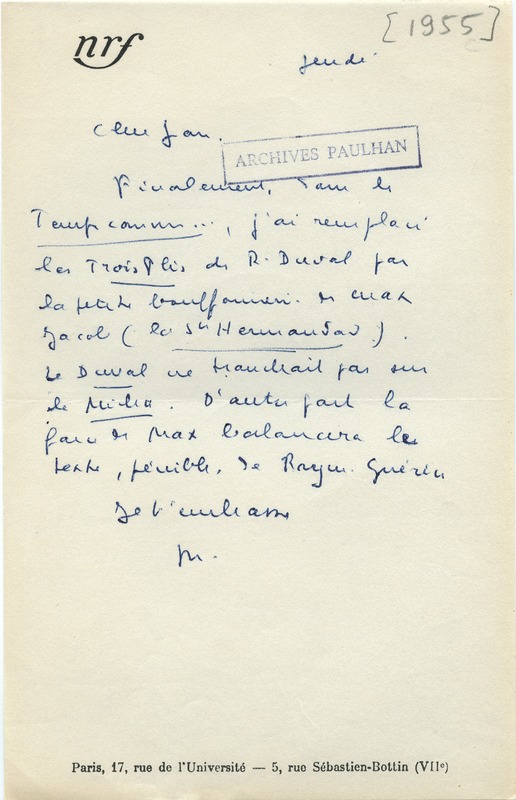 nrf
[1955]
jeudi
Cher Jean.
ARCHIVES PAULHAN
Finalement, dans le
Temps comme..., j'ai remplacé
les Trois Plis de R. Duval par
la petite bouffonnerie de Max
Jacob (la Ste Hermandad).
Le Duval ne tranchait pas sur
le . D'autre part la
farce de Max balancera le
texte, pénible, de Raym. Guérin
Je t'embrasse
M.
Paris, 17, rue de l'Université — 5, rue Sébastien-Bottin (VIIe)